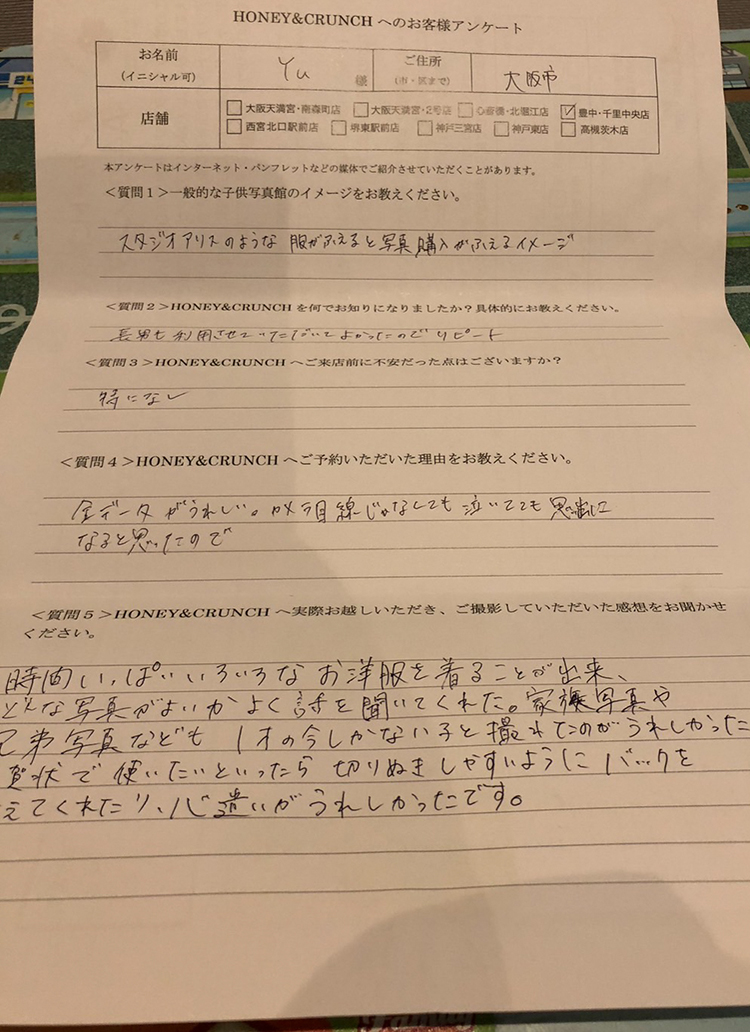 HONEY&CRUNCH へのお客様アンケート
お名前
(イニシャル可)
Yu 様
ご住所
(市・区まで)
大阪市
店舗
□大阪天満宮・南森町店 □大阪天満宮・2号店 □心斎橋・北堀江店 ☑豊中・千里中央店
□西宮北口駅前店 □堺東駅前店 □神戸三宮店 □神戸東店 □高槻茨木店
本アンケートはインターネット・パンフレットなどの媒体でご紹介させていただくことがあります。
<質問1>一般的な子供写真館のイメージをお教えください。
スタジオアリスのような 服がふえると写真購入がふえるイメージ
<質問2>HONEY&CRUNCH を何でお知りになりましたか?具体的にお教えください。
長男も利用させていただいてよかったのでリピート
<質問3>HONEY&CRUNCH へご来店前に不安だった点はございますか?
特になし
<質問4>HONEY&CRUNCH へご予約いただいた理由をお教えください。
全データがうれしい。カメラ目線じゃなくても 泣いてても 思い出に
なると思ったので
<質問5>HONEY&CRUNCH へ実際お越しいただき、ご撮影していただいた感想をお聞かせ
ください。
時間いっぱいいろいろな お洋服を着ることが出来、
どんな写真がよいかよく話を聞いてくれた。家族写真や
兄弟写真なども 1才の今しかない子と撮れたのがうれしかった
賀状で使いたいといったら 切りぬきしやすいように バックを
えてくれたり、心遣いがうれしかったです。